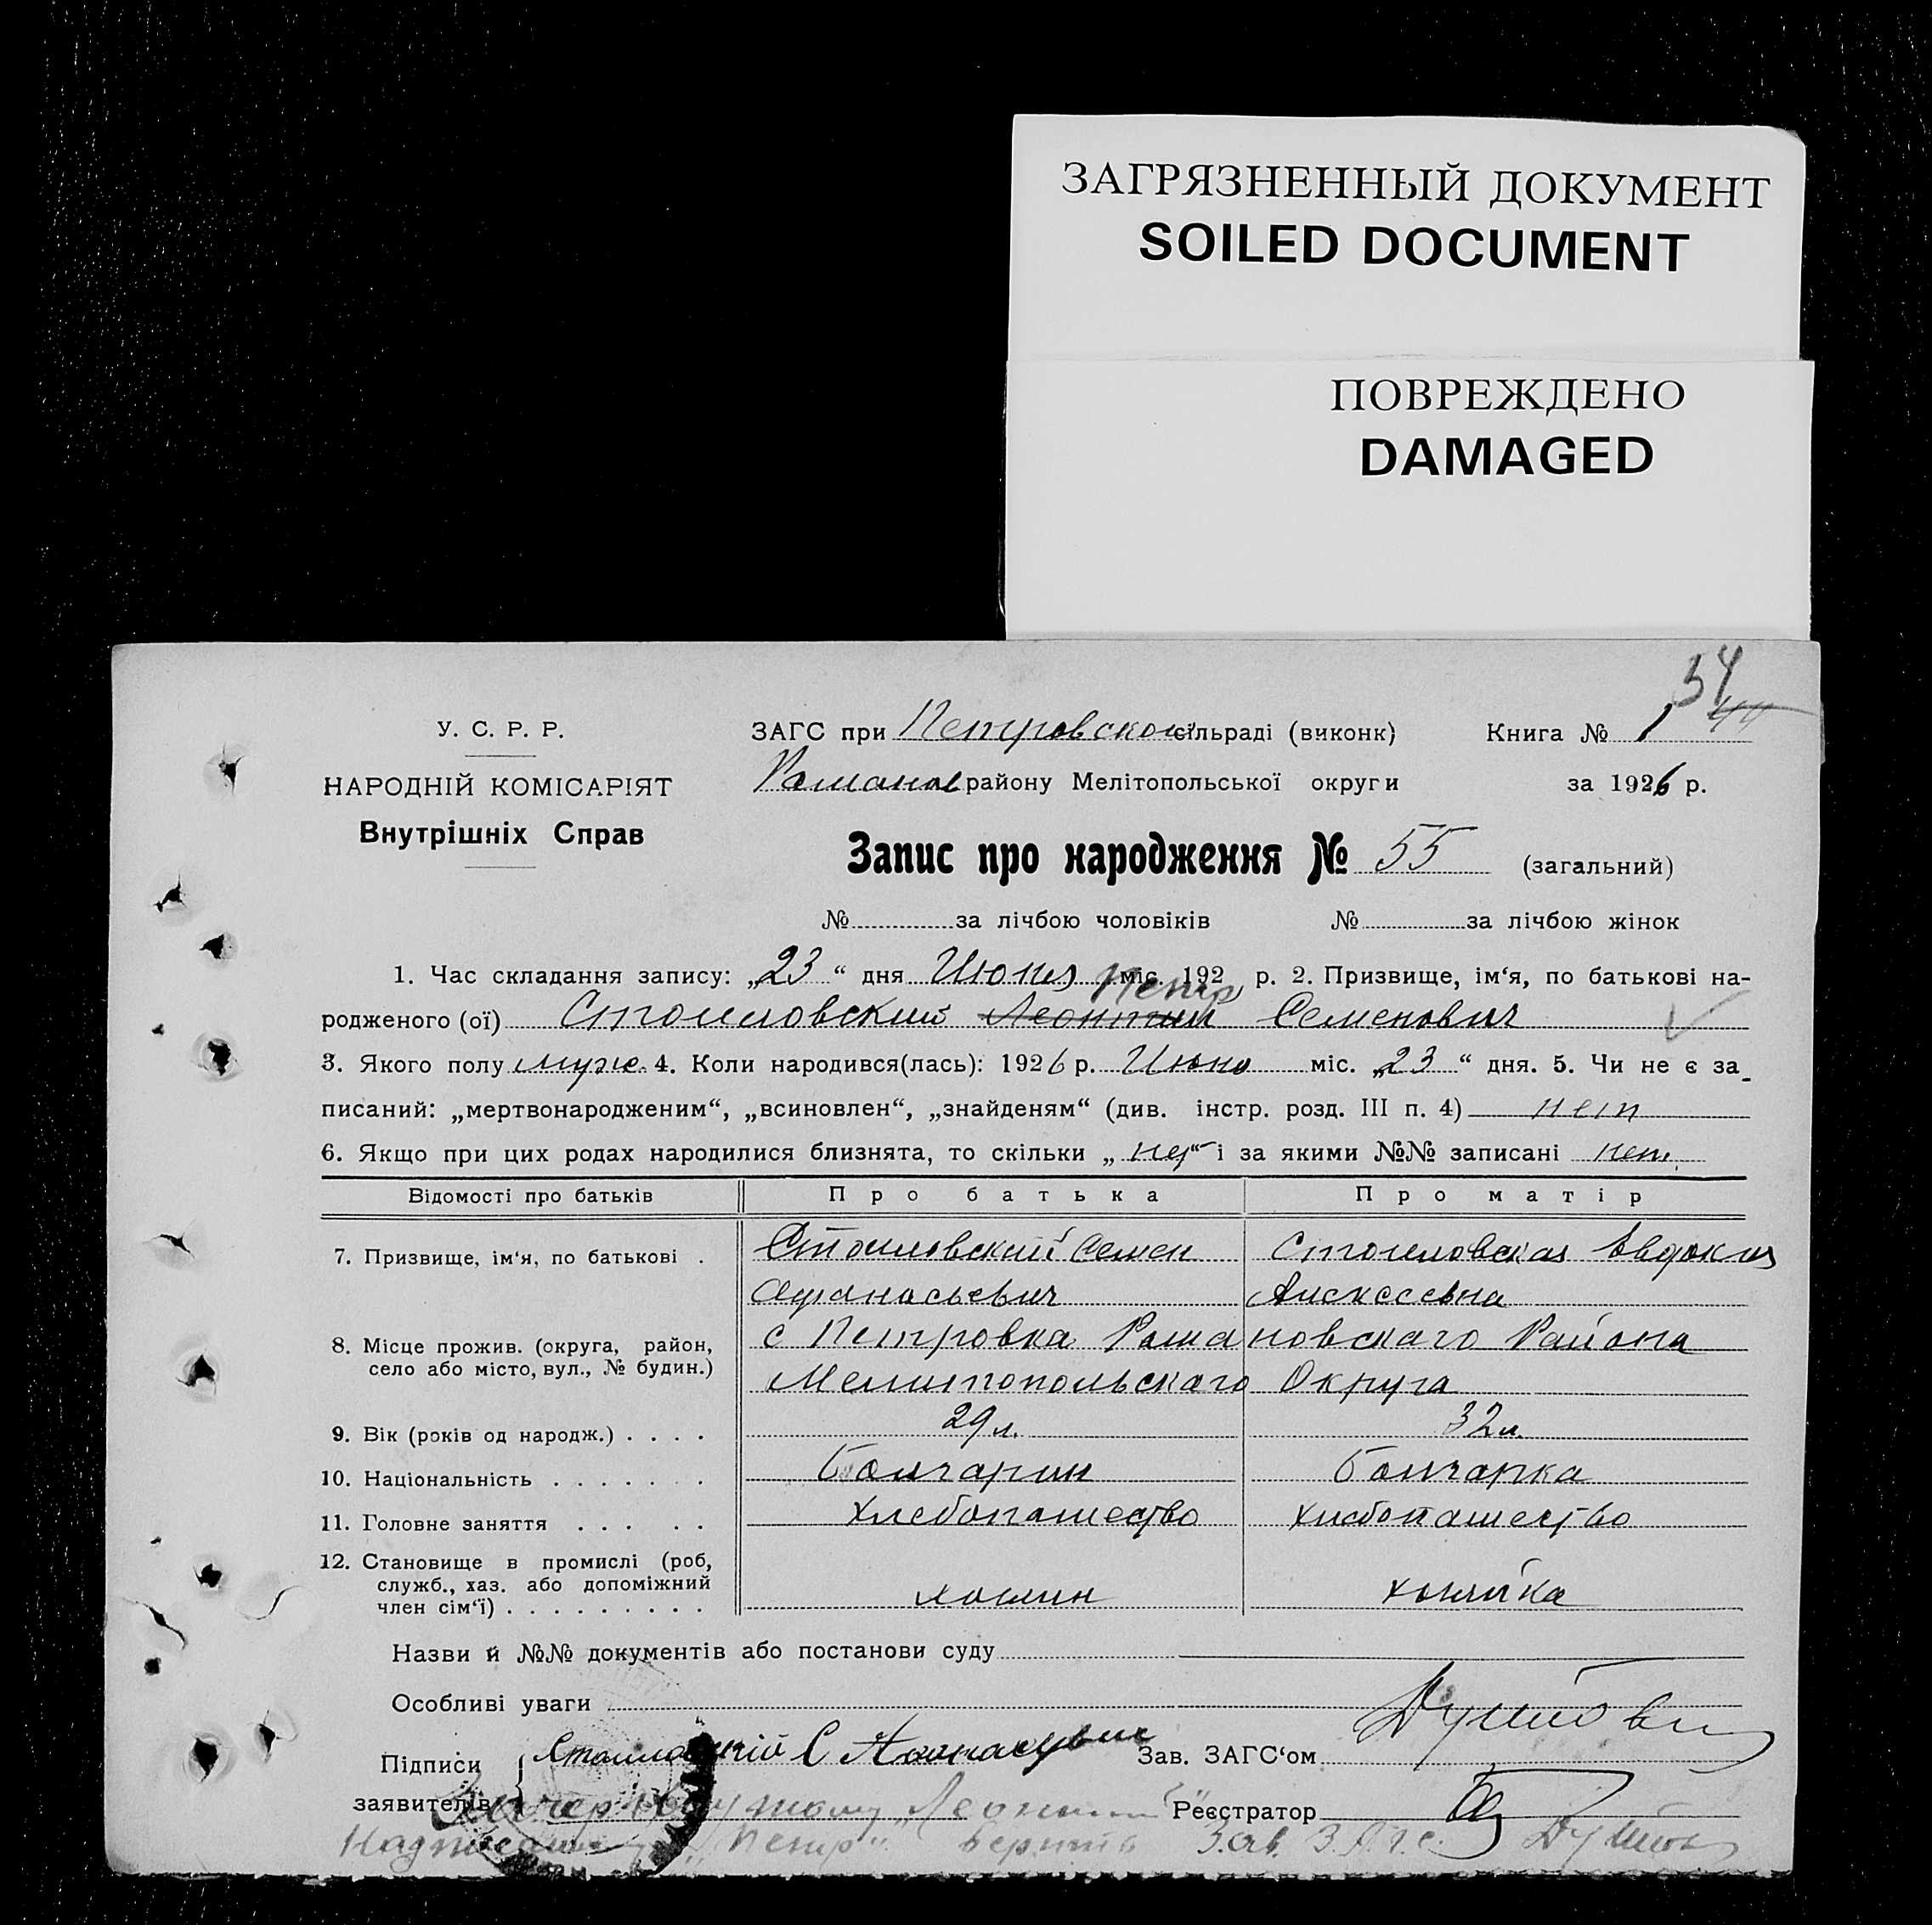 ЗАГРЯЗНЕННЫЙ ДОКУМЕНТ
SOILED DOCUMENT
ПОВРЕЖДЕНО
DAMAGED
54
У. С. Р. Р.
ЗАГС при Петровской сільраді (виконк)
Книга № 1 44
НАРОДНІЙ КОМІСАРІЯТ
Романов району Мелітопольської округи
за 1926 р.
Внутрішніх Справ
Запис про народження № 55 (загальний)
№ за лічбою чоловіків № за лічбою жінок
1. Час складання запису: „23“ дня Июня міс. 192 р. 2. Призвище, ім‘я, по батькові на-
Петр
родженого (ої) Стоиловский Леонтий Семенович
3. Якого полу муж. 4. Коли народився(лась): 1926 р. Июня міс. „23“ дня. 5. Чи не є за-
писаний: „мертвонародженим“, „всиновлен“, „знайденям“ (див. інстр. розд. III п. 4) нет
6. Якщо при цих родах народилися близнята, то скільки „нет“ і за якими №№ записані нет.
Відомості про батьків Про батька Про матір
7. Призвище, ім‘я, по батькові . Стоиловский Семен Стоиловская Евдокия
Афанасьевич Алексеевна
8. Місце прожив. (округа, район, с Петровка Романовскаго Района
село або місто, вул., № будин.) Мелитопольскаго Округа
9. Вік (років од народж.) . . . . 29 л. 32 л.
10. Національність . . . . . . . Болгарин Болгарка
11. Головне заняття . . . . . Хлебопашество Хлебопашество
12. Становище в промислі (роб,
служб., хаз. або допоміжний
член сім‘ї) . . . . . . . . . хозяин хозяйка
Назви й №№ документів або постанови суду
Особливі уваги
Підписи Стоиловский С Зав. ЗАГС‘ом
заявителів Леонтий Реєстратор
„Петр“ Верить Зав. ЗАГС.